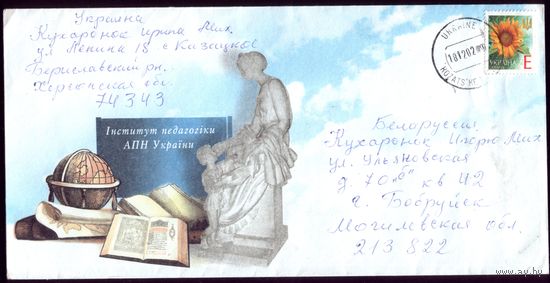 Україна
Кухаронок Ирина Мих.
ул Ленина 18 с Казацкое
Бериславский рн.
Херсонская обл.
74343
Інститут педагогіки
АПН України
UKRAINE
181202
KOZATS'KE
УКРАЇНА
Е
Белоруссия
Кухаронок Игорю Мих.
ул. Ульяновская
д. 70 "б" кв 42
г. Бобруйск
Могилевская обл.
213822
www.ay.by